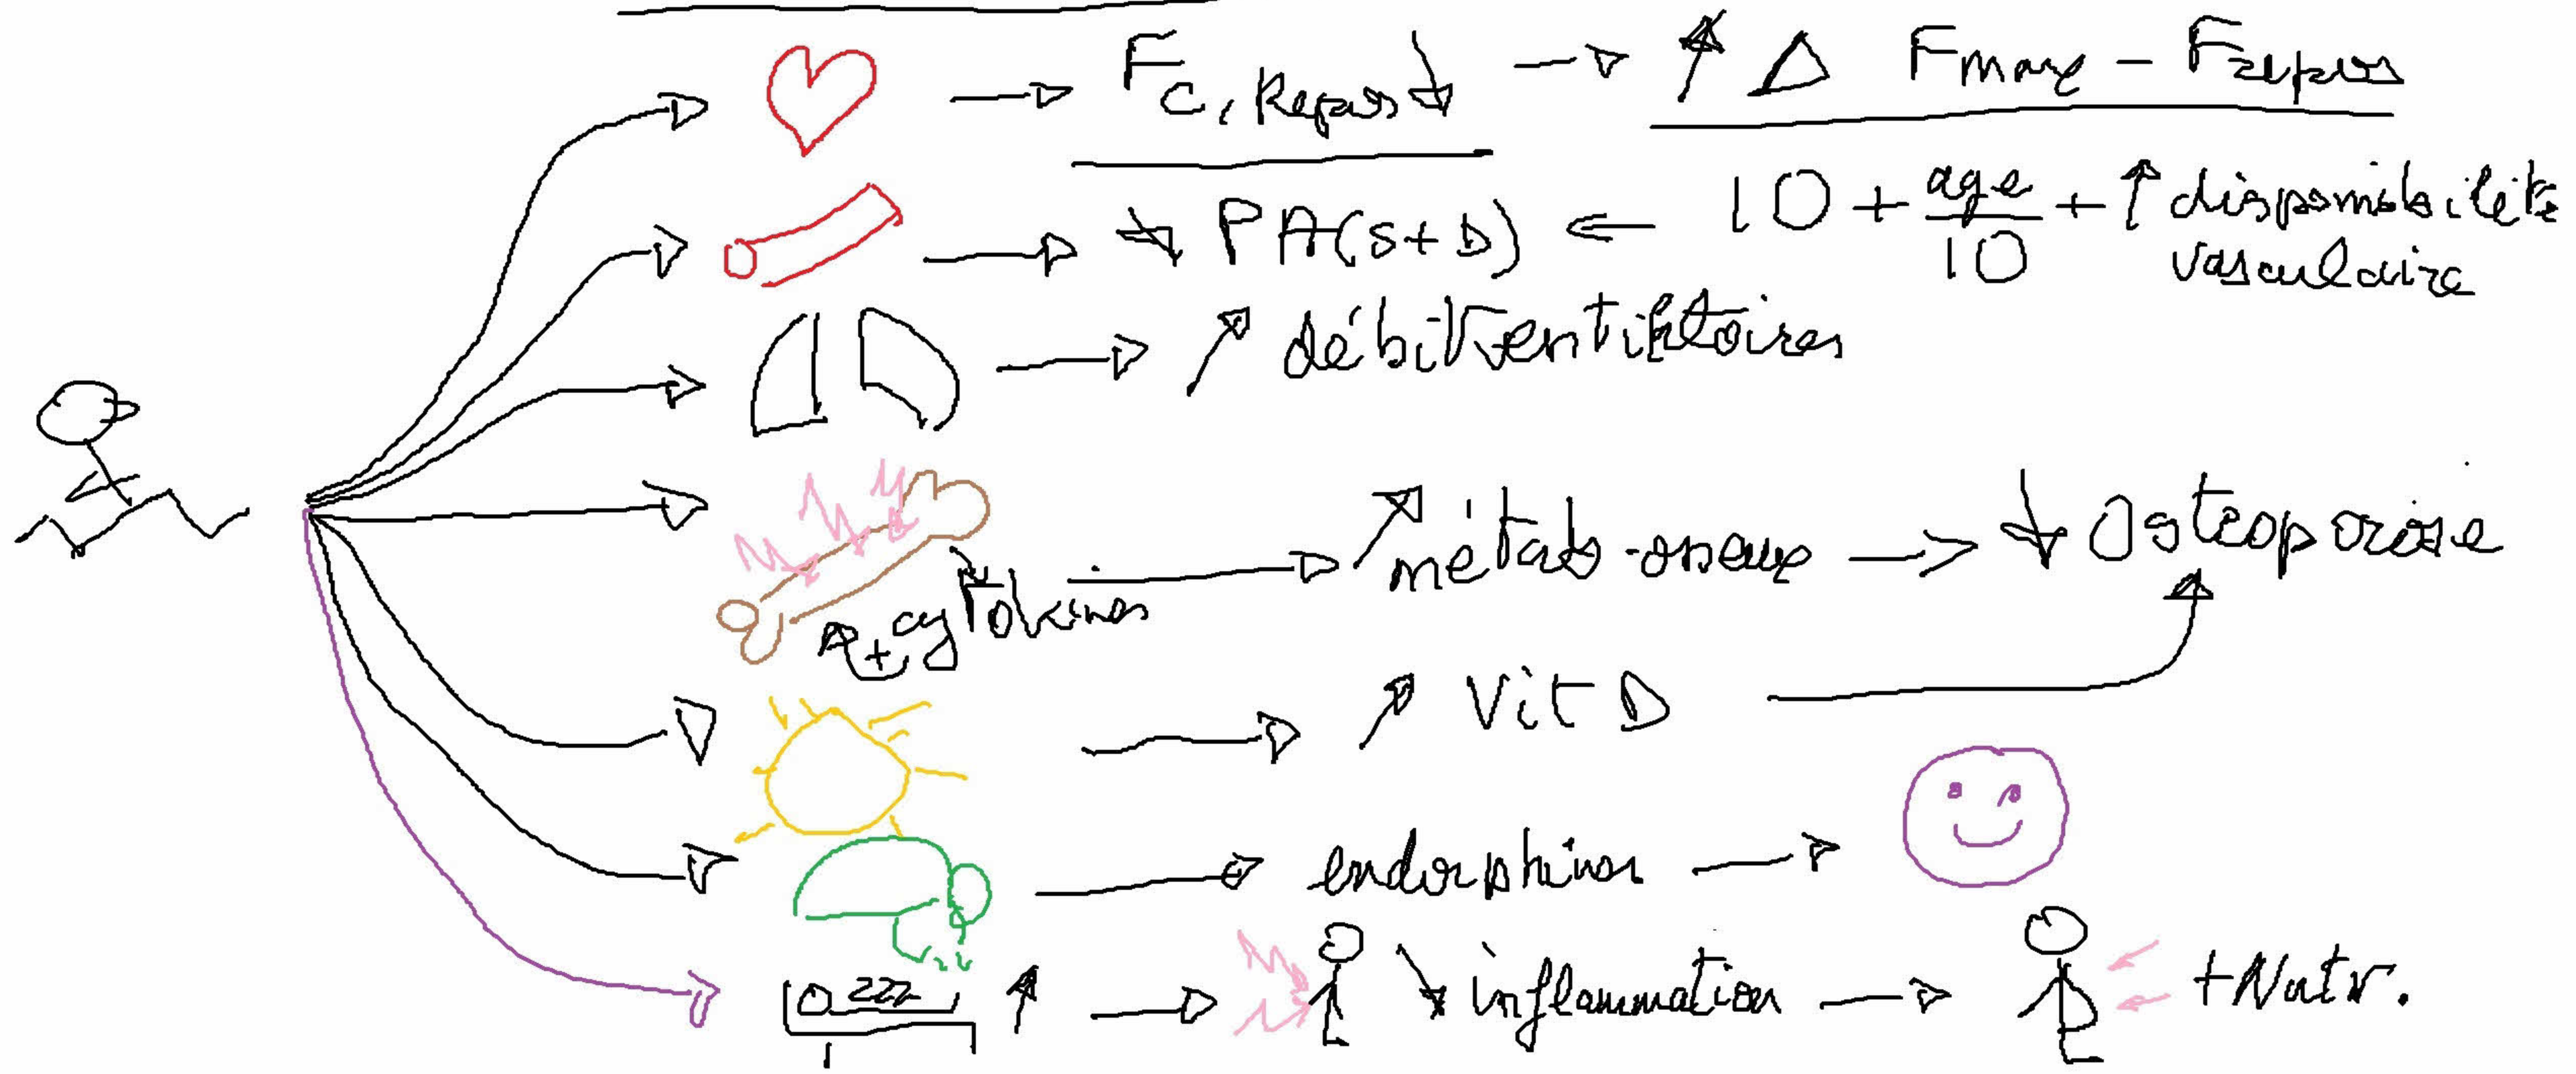 Fc, Repos ↓ → ↑ Δ Fmax - Frepos
↘ PA(S+D) ⇐ 10 + age/10 + ↑ disponibilité vasculaire
↗ débit ventilatoires
+ cytokines → ↗ métab. osseux → ↓ Osteoporose
↗ Vit D
endorphines
zzz ↑ → ↘ inflammation → + Nutr.